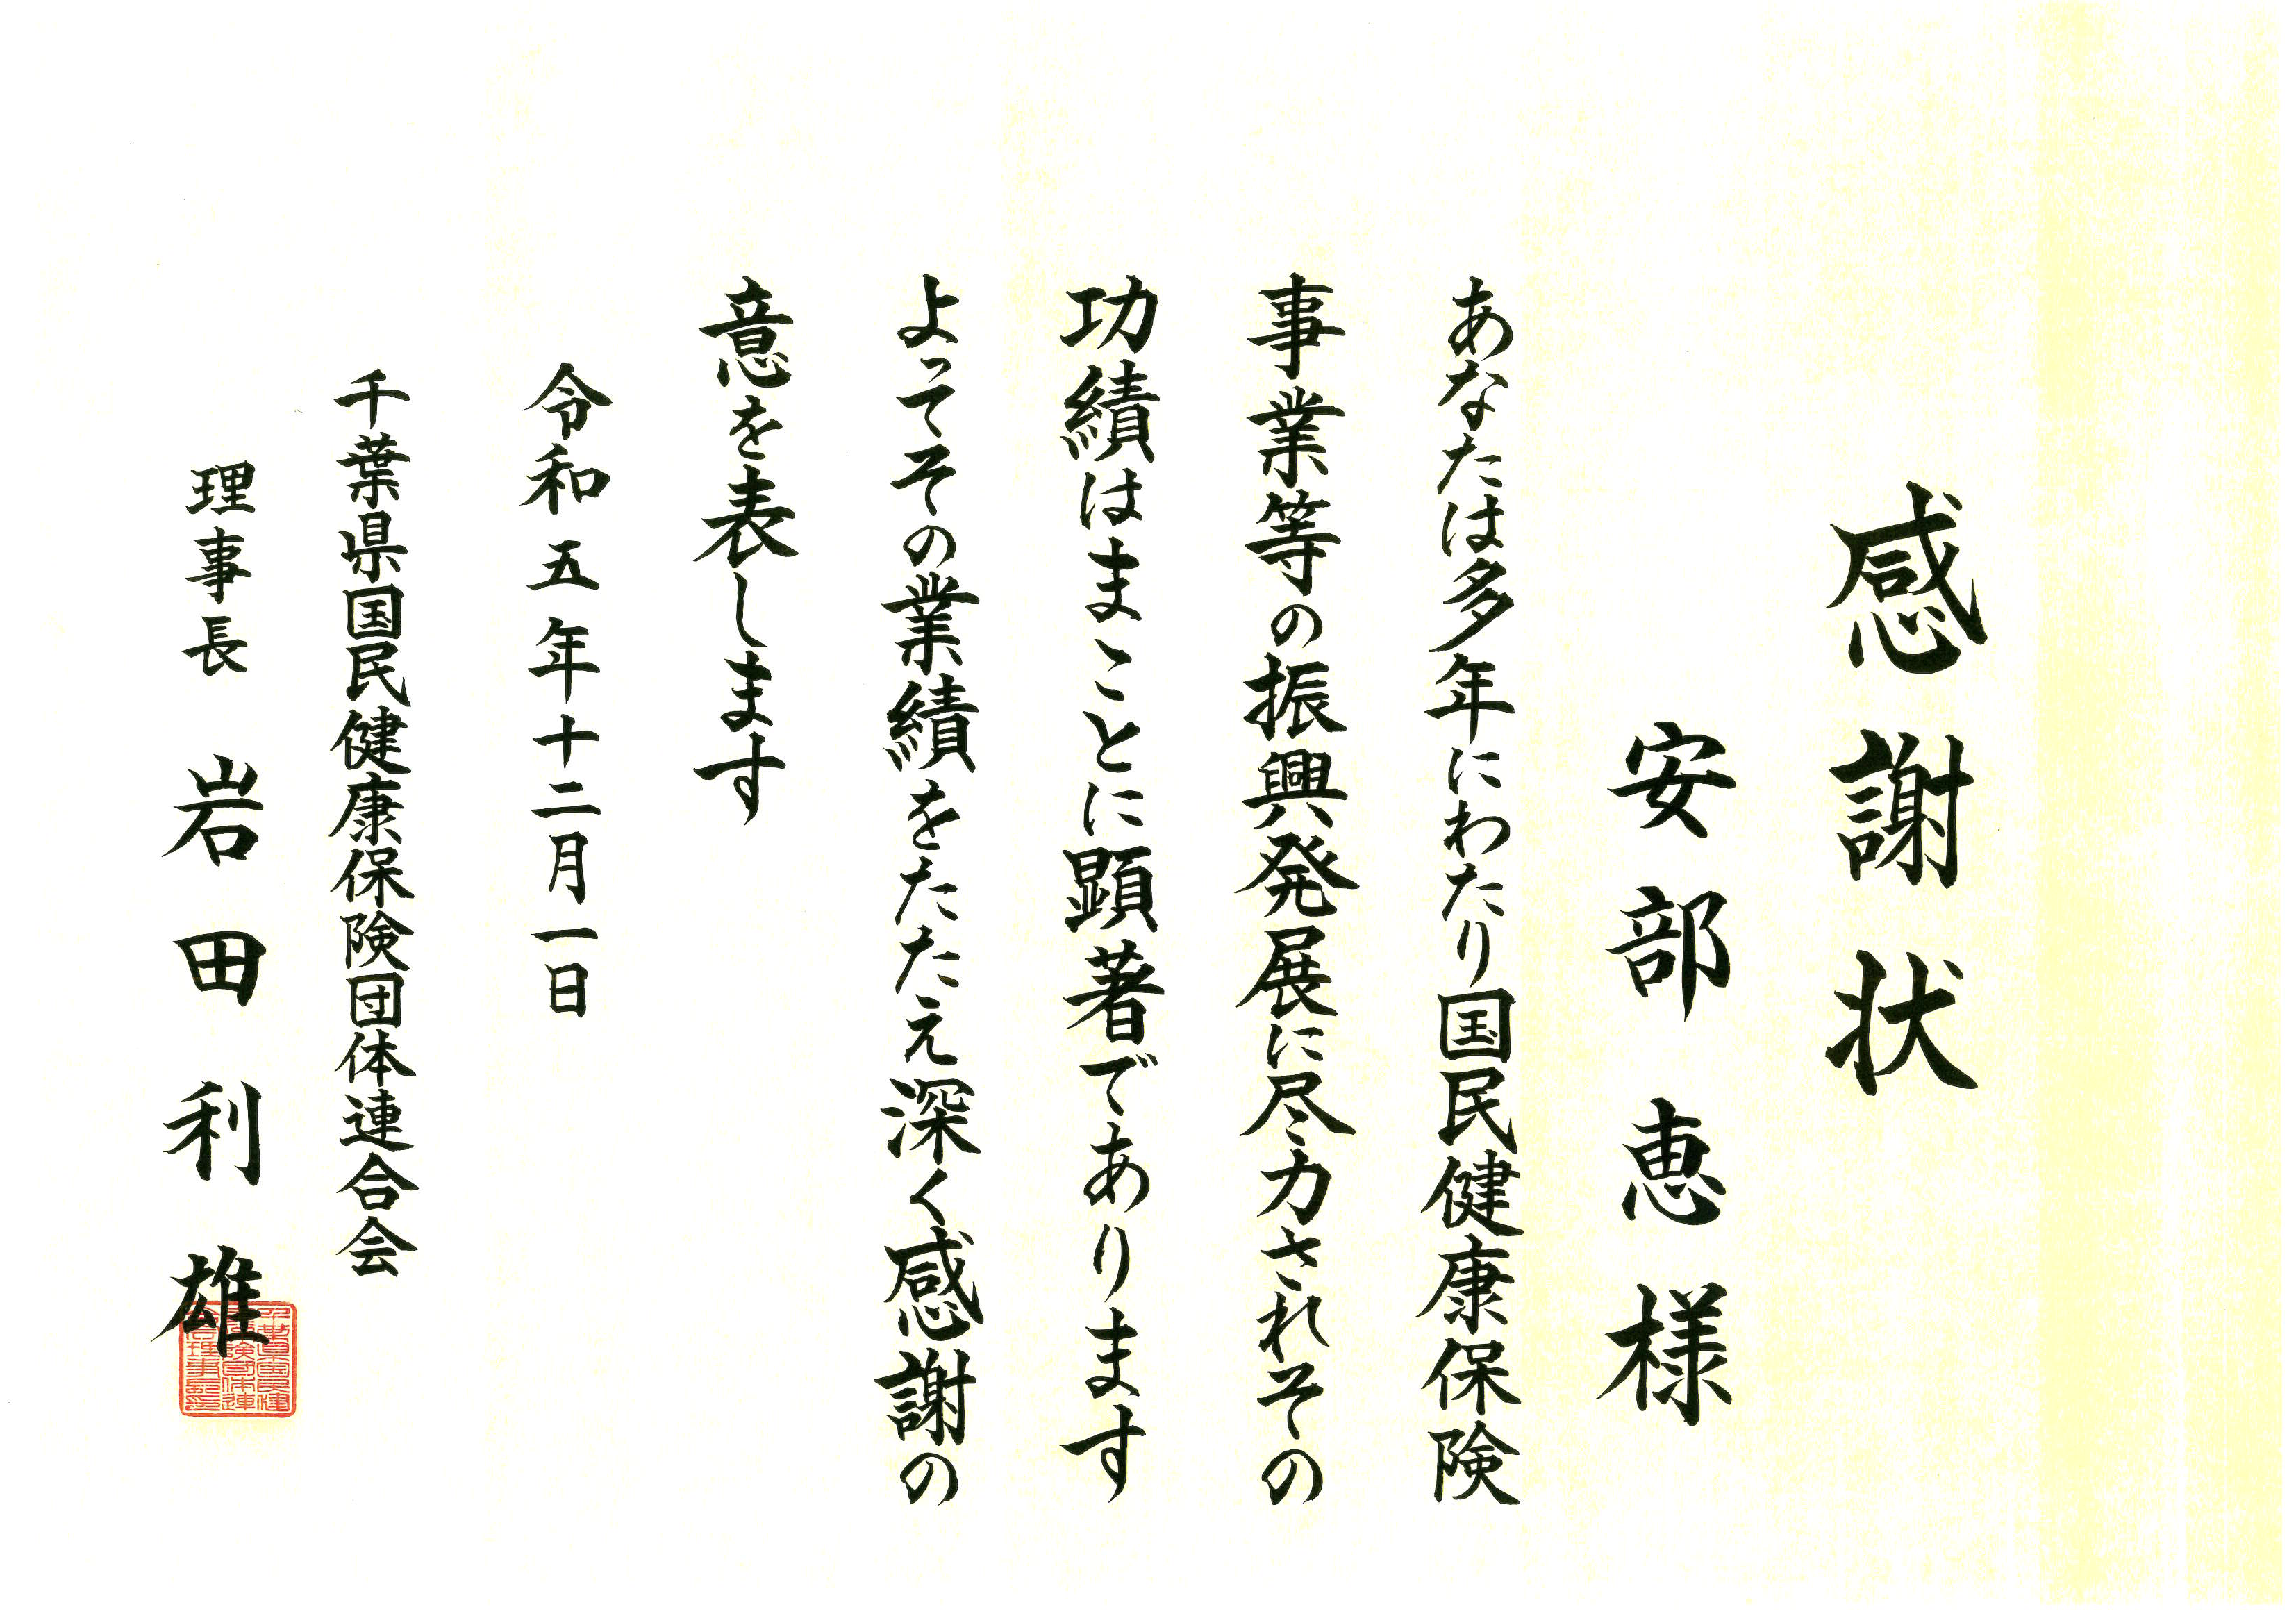 感謝状
安部恵様
あなたは多年にわたり国民健康保険
事業等の振興発展に尽力されその
功績はまことに顕著であります
よってその業績をたたえ深く感謝の
意を表します
令和五年十二月一日
千葉県国民健康保険団体連合会
理事長 岩田利雄